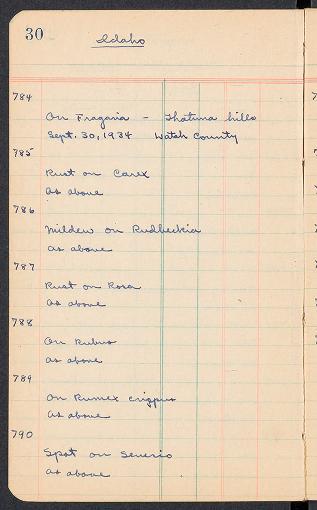 30
Idaho
784
On Fragaria - Thatuna hills
Sept. 30, 1934 Latah County
785
Rust on Carex
as above
786
Mildew on Rudbeckia
as above
787
Rust on Rosa
as above
788
On Rubus
as above
789
On Rumex crispus
as above
790
Spot on Senecio
as above